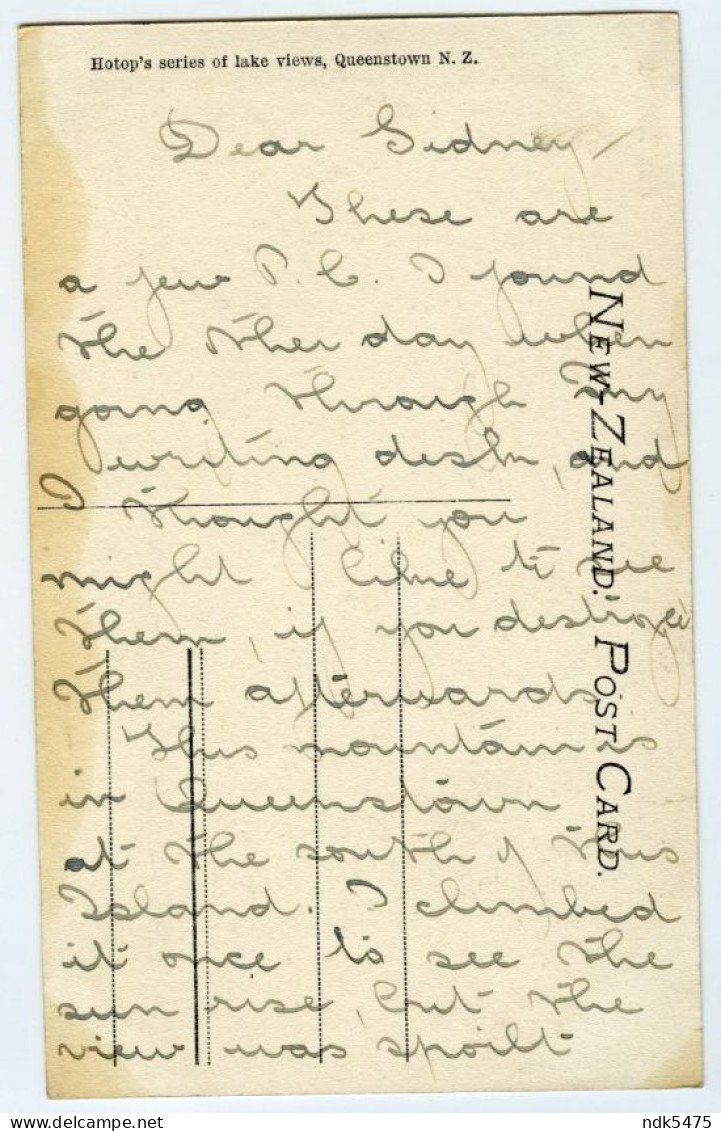 Hotop's series of lake views, Queenstown N. Z.
Dear Sidney,
These are
a few P. C. I found
the other day when
going through my
writing desk, and
I thought you
might like to see
them, if you destroyed
them afterwards.
This mountain is
in Queenstown
at the south of this
Island. I climbed
it once to see the
sun rise, but the
view was spoilt
NEW-ZEALAND. POST CARD.
ndk5475